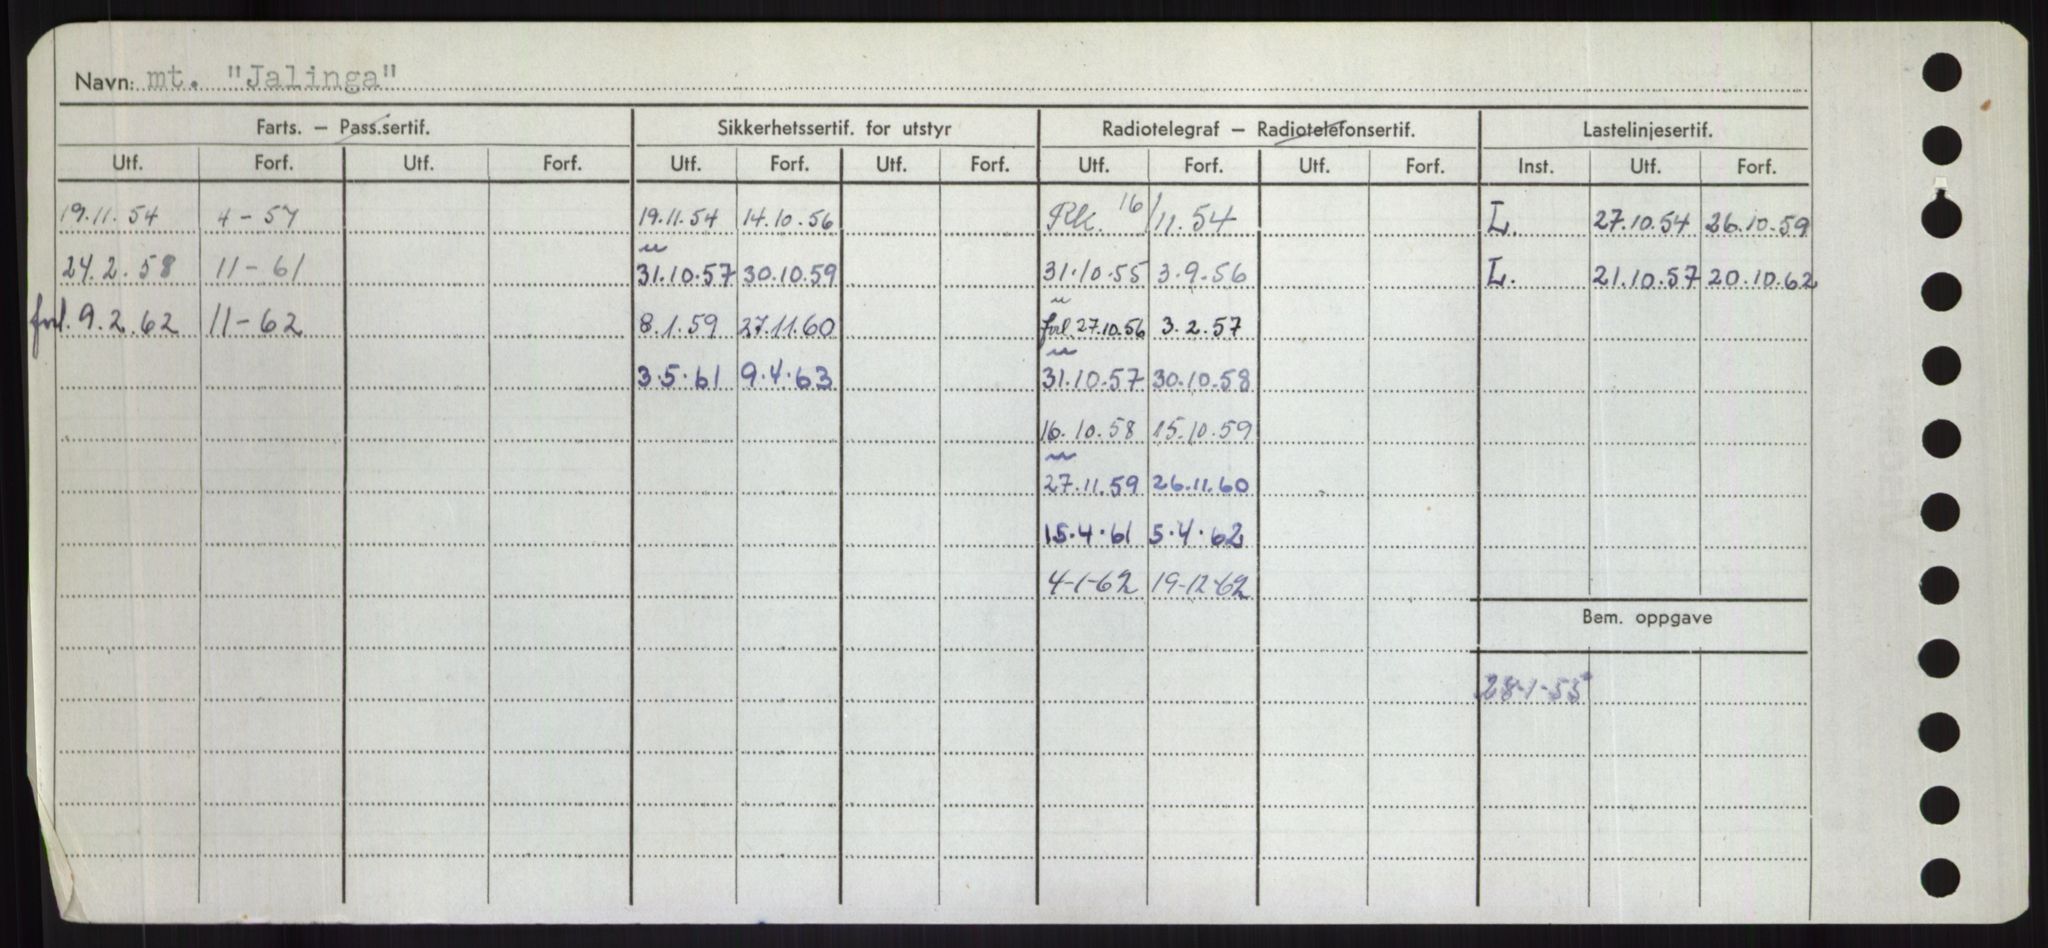 Navn: mt. "Jalinga"
Farts. – Pass.sertif. Sikkerhetssertif. for utstyr Radiotelegraf – Radiotelefonsertif. Lastelinjesertif.
Utf. Forf. Utf. Forf. Utf. Forf. Utf. Forf. Utf. Forf. Utf. Forf. Inst. Utf. Forf.
19.11.54 4-57 19.11.54 14.10.56 Rk. 16/11.54 L. 27.10.54 26.10.59
24.2.58 11-61 31.10.57 30.10.59 31.10.55 3.9.56 L. 21.10.57 20.10.62
forl. 9.2.62 11-62 8.1.59 27.11.60 forl 27.10.56 3.2.57
3.5.61 9.4.63 31.10.57 30.10.58
16.10.58 15.10.59
27.11.59 26.11.60
15.4.61 5.4.62
4-1-62 19-12-62
Bem. oppgave
28-1-55